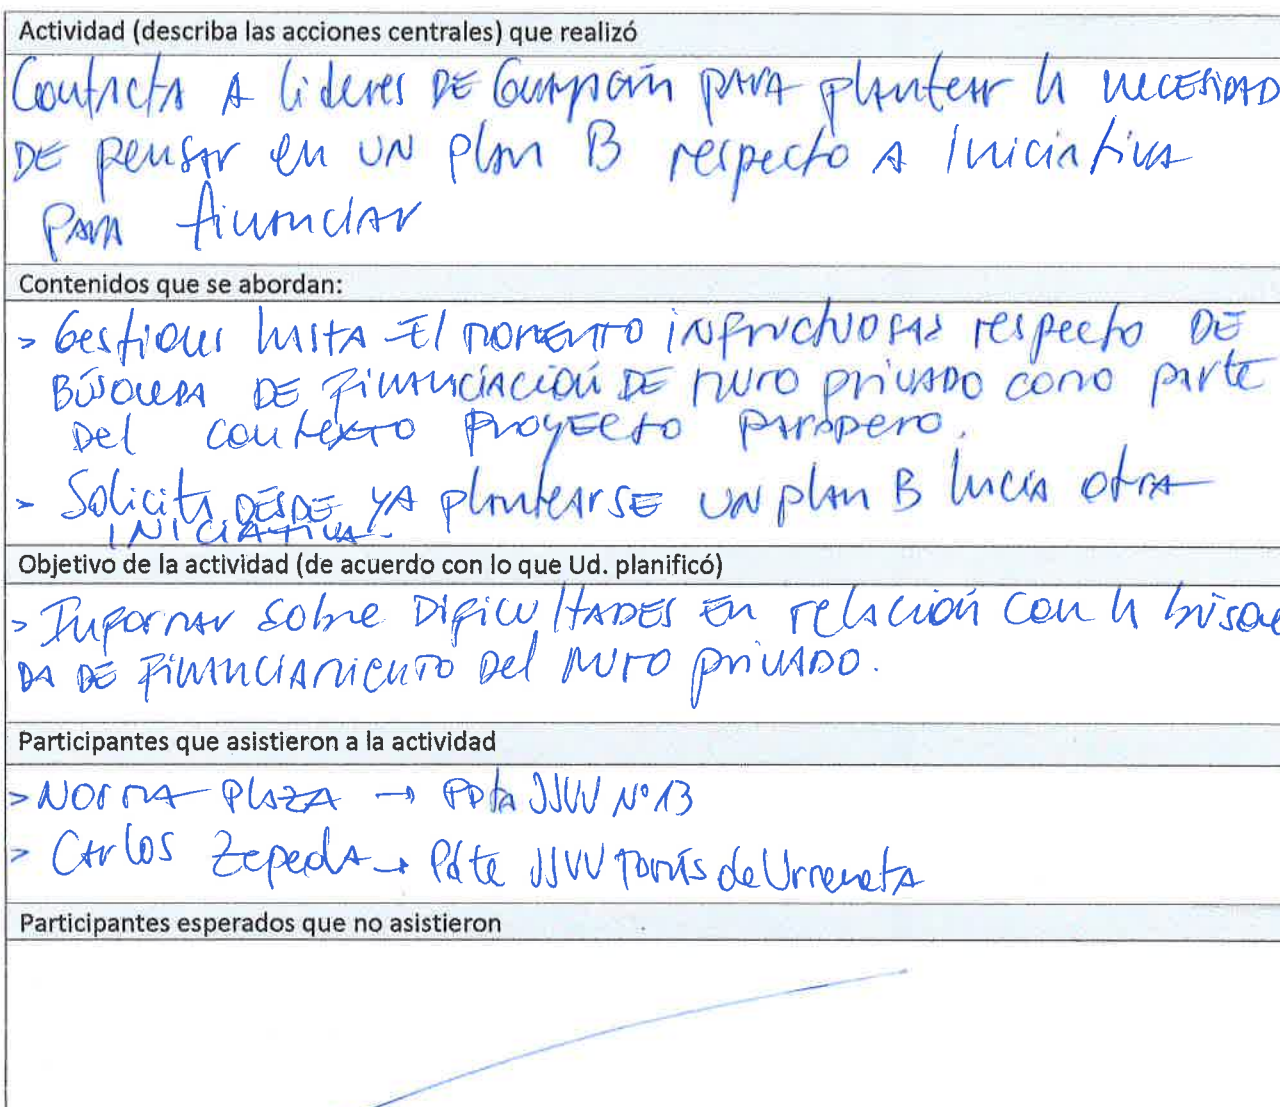 Actividad (describa las acciones centrales) que realizó
Contacta A lideres DE Guayacán PARA plantear la NECESIDAD
DE pensar en UN plan B respecto A Iniciativa
PARA financiar
Contenidos que se abordan:
> Gestiones hasta El MOMENTO INfructuosas respecto DE
BÚSQUEDA DE FinanciACIÓN DE MURO privado como parte
Del contexto PROYECTO PARAPERO.
> Solicita DESDE YA plantearSE UN plan B hacia otra
INICIATIVA.
Objetivo de la actividad (de acuerdo con lo que Ud. planificó)
> Informar sobre DificulTADES En relación con la búsque
DA DE FinanciaMiento Del MURO privADO.
Participantes que asistieron a la actividad
> NORMA PlAZA → PDta JJVV N° 13
> Carlos Zepeda → Pdte JJVV Tomás de Urmeneta
Participantes esperados que no asistieron